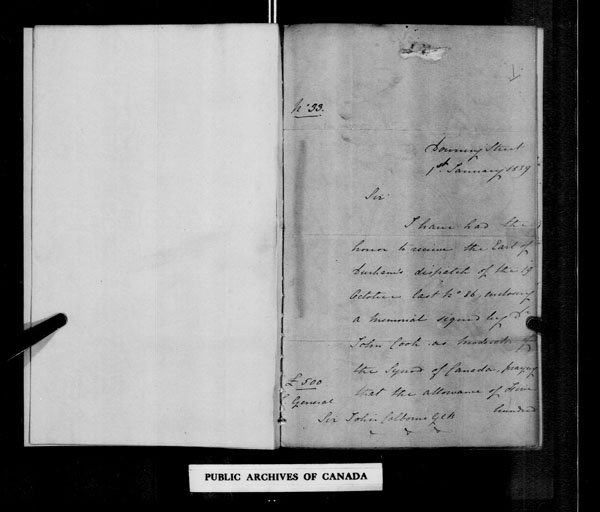 No 33.
Downing Street
1st January 1839
Sir
I have had the
honor to receive the Earl of
Durham's despatch of the 19
October last No 86, enclosing
a Memorial signed by Dr
John Cook as Moderator of
the Synod of Canada, praying
that the allowance of Five
hundred
£500
General
Sir John Colborne GCB
PUBLIC ARCHIVES OF CANADA